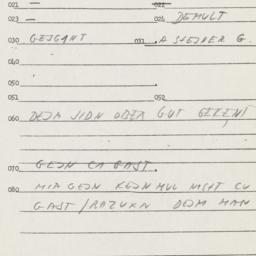 021 — 022
023 — 024 DEMULT
030 GEJGANT 031 A STEJNER G.
040
050
051 052
060 DEJM JIDN OBER GUT GEKENT
070 GEJN CA GAST.
080 MIR GEJN KEJN MUL NISHT CU
GAST / RAZUKN DEJM MAN